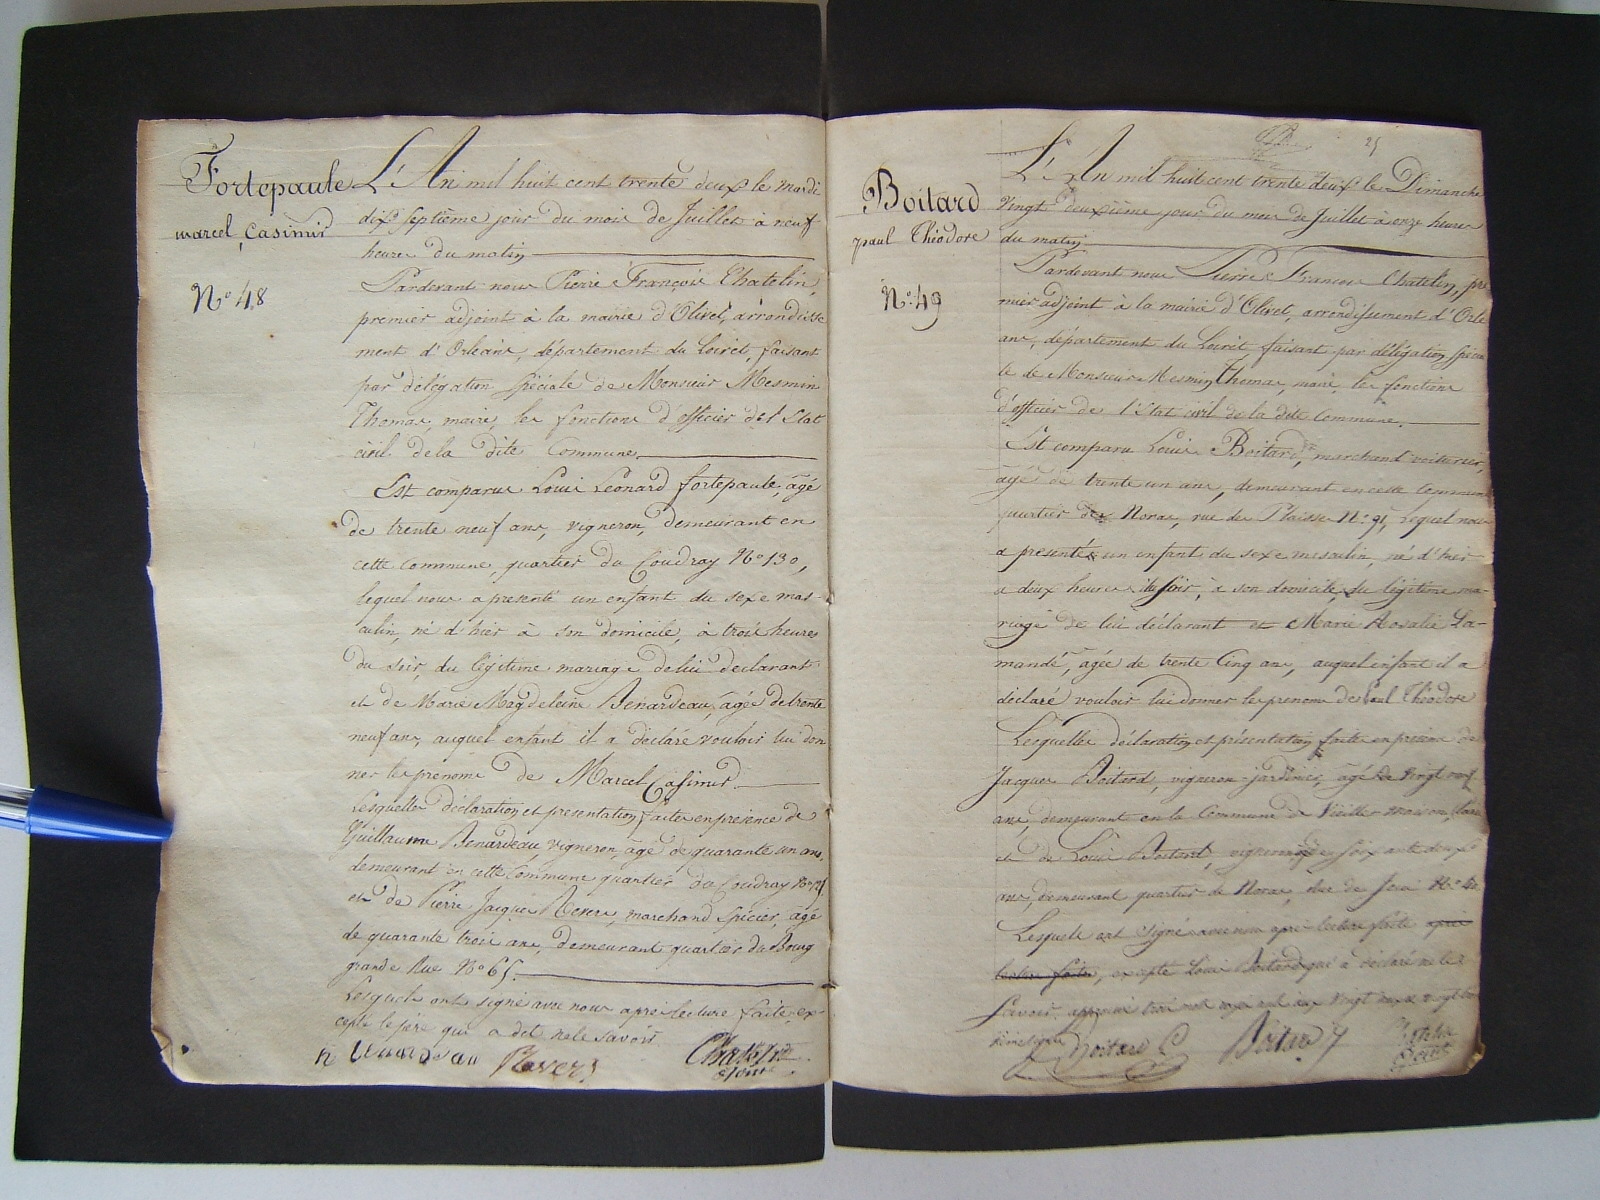 Fortepaule
marcel Casimir
N° 48
L'An mil huit cent trente deux le mardi
dix septième jour du mois de Juillet à neuf
heures du matin
Pardevant nous Pierre François Chatelin,
premier adjoint à la mairie d'Olivet, arrondisse
ment d'Orléans, département du Loiret, faisant
par délégation spéciale de Monsieur Mesmin
Thomas, maire, les fonctions d'officier de l'Etat
civil de la dite Commune.
Est comparu Louis Léonard fortepaule, âgé
de trente neuf ans, vigneron, demeurant en
cette Commune, quartier du Coudray N° 130,
lequel nous a présenté un enfant du sexe mas-
culin, né d'hier à son domicile, à trois heures
du soir, du légitime mariage de lui déclarant
et de Marie Magdeleine Benardeau, âgée de trente
neuf ans, auquel enfant il a déclaré vouloir lui don
ner les prénoms de Marcel Casimir.
Lesquelles déclaration et présentation faites en présence de
Guillaume Benardeau, vigneron, âgé de quarante un ans,
demeurant en cette Commune quartier du Coudray
et de Pierre Jacques Revers, marchand épicier, âgé
de quarante trois ans, demeurant quartier du Bourg
grande Rue N° 65.
Lesquels ont signé avec nous après lecture faite, ex-
cepté le père qui a dit ne le savoir
Benardeau Revers Chatelin
adjoint
25
Boitard
paul Théodore
N° 49
L'An mil huit cent trente deux le Dimanche
vingt deuxième jour du mois de Juillet à onze heures
du matin
Pardevant nous Pierre François Chatelin, pre
mier adjoint à la mairie d'Olivet, arrondissement d'Orlé
ans, département du Loiret faisant par délégation spécia
le de Monsieur Mesmin Thomas, maire, les fonctions
d'officier de l'Etat civil de la dite Commune.
Est comparu Louis Boitard, marchand voiturier,
âgé de trente un ans, demeurant en cette Commune
quartier des Noras, rue de Plaisse N° 91, lequel nous
a présenté un enfant du sexe masculin, né d'hier
a deux heures du soir, à son domicile, du légitime ma-
riage de lui déclarant et Marie Rosalie La-
mandé, âgée de trente Cinq ans, auquel enfant il a
déclaré vouloir lui donner les prénoms de Paul Théodore
Lesquelles déclaration et présentation faites en présence de
Jacques Boitard, vigneron-jardinier, âgé de vingt neuf
ans, demeurant en la Commune de Vieilles maisons,
et de Louis Boitard, vigneron âgé de soixante deux
ans, demeurant quartier de Noras, Rue de
Lesquels ont signé avec nous après lecture faite après
lecture faite, excepté Louis Boitard qui a déclaré ne le
savoir. approuvé trois mot rayé nul
Boitard Boitard Chatelin
adjoint